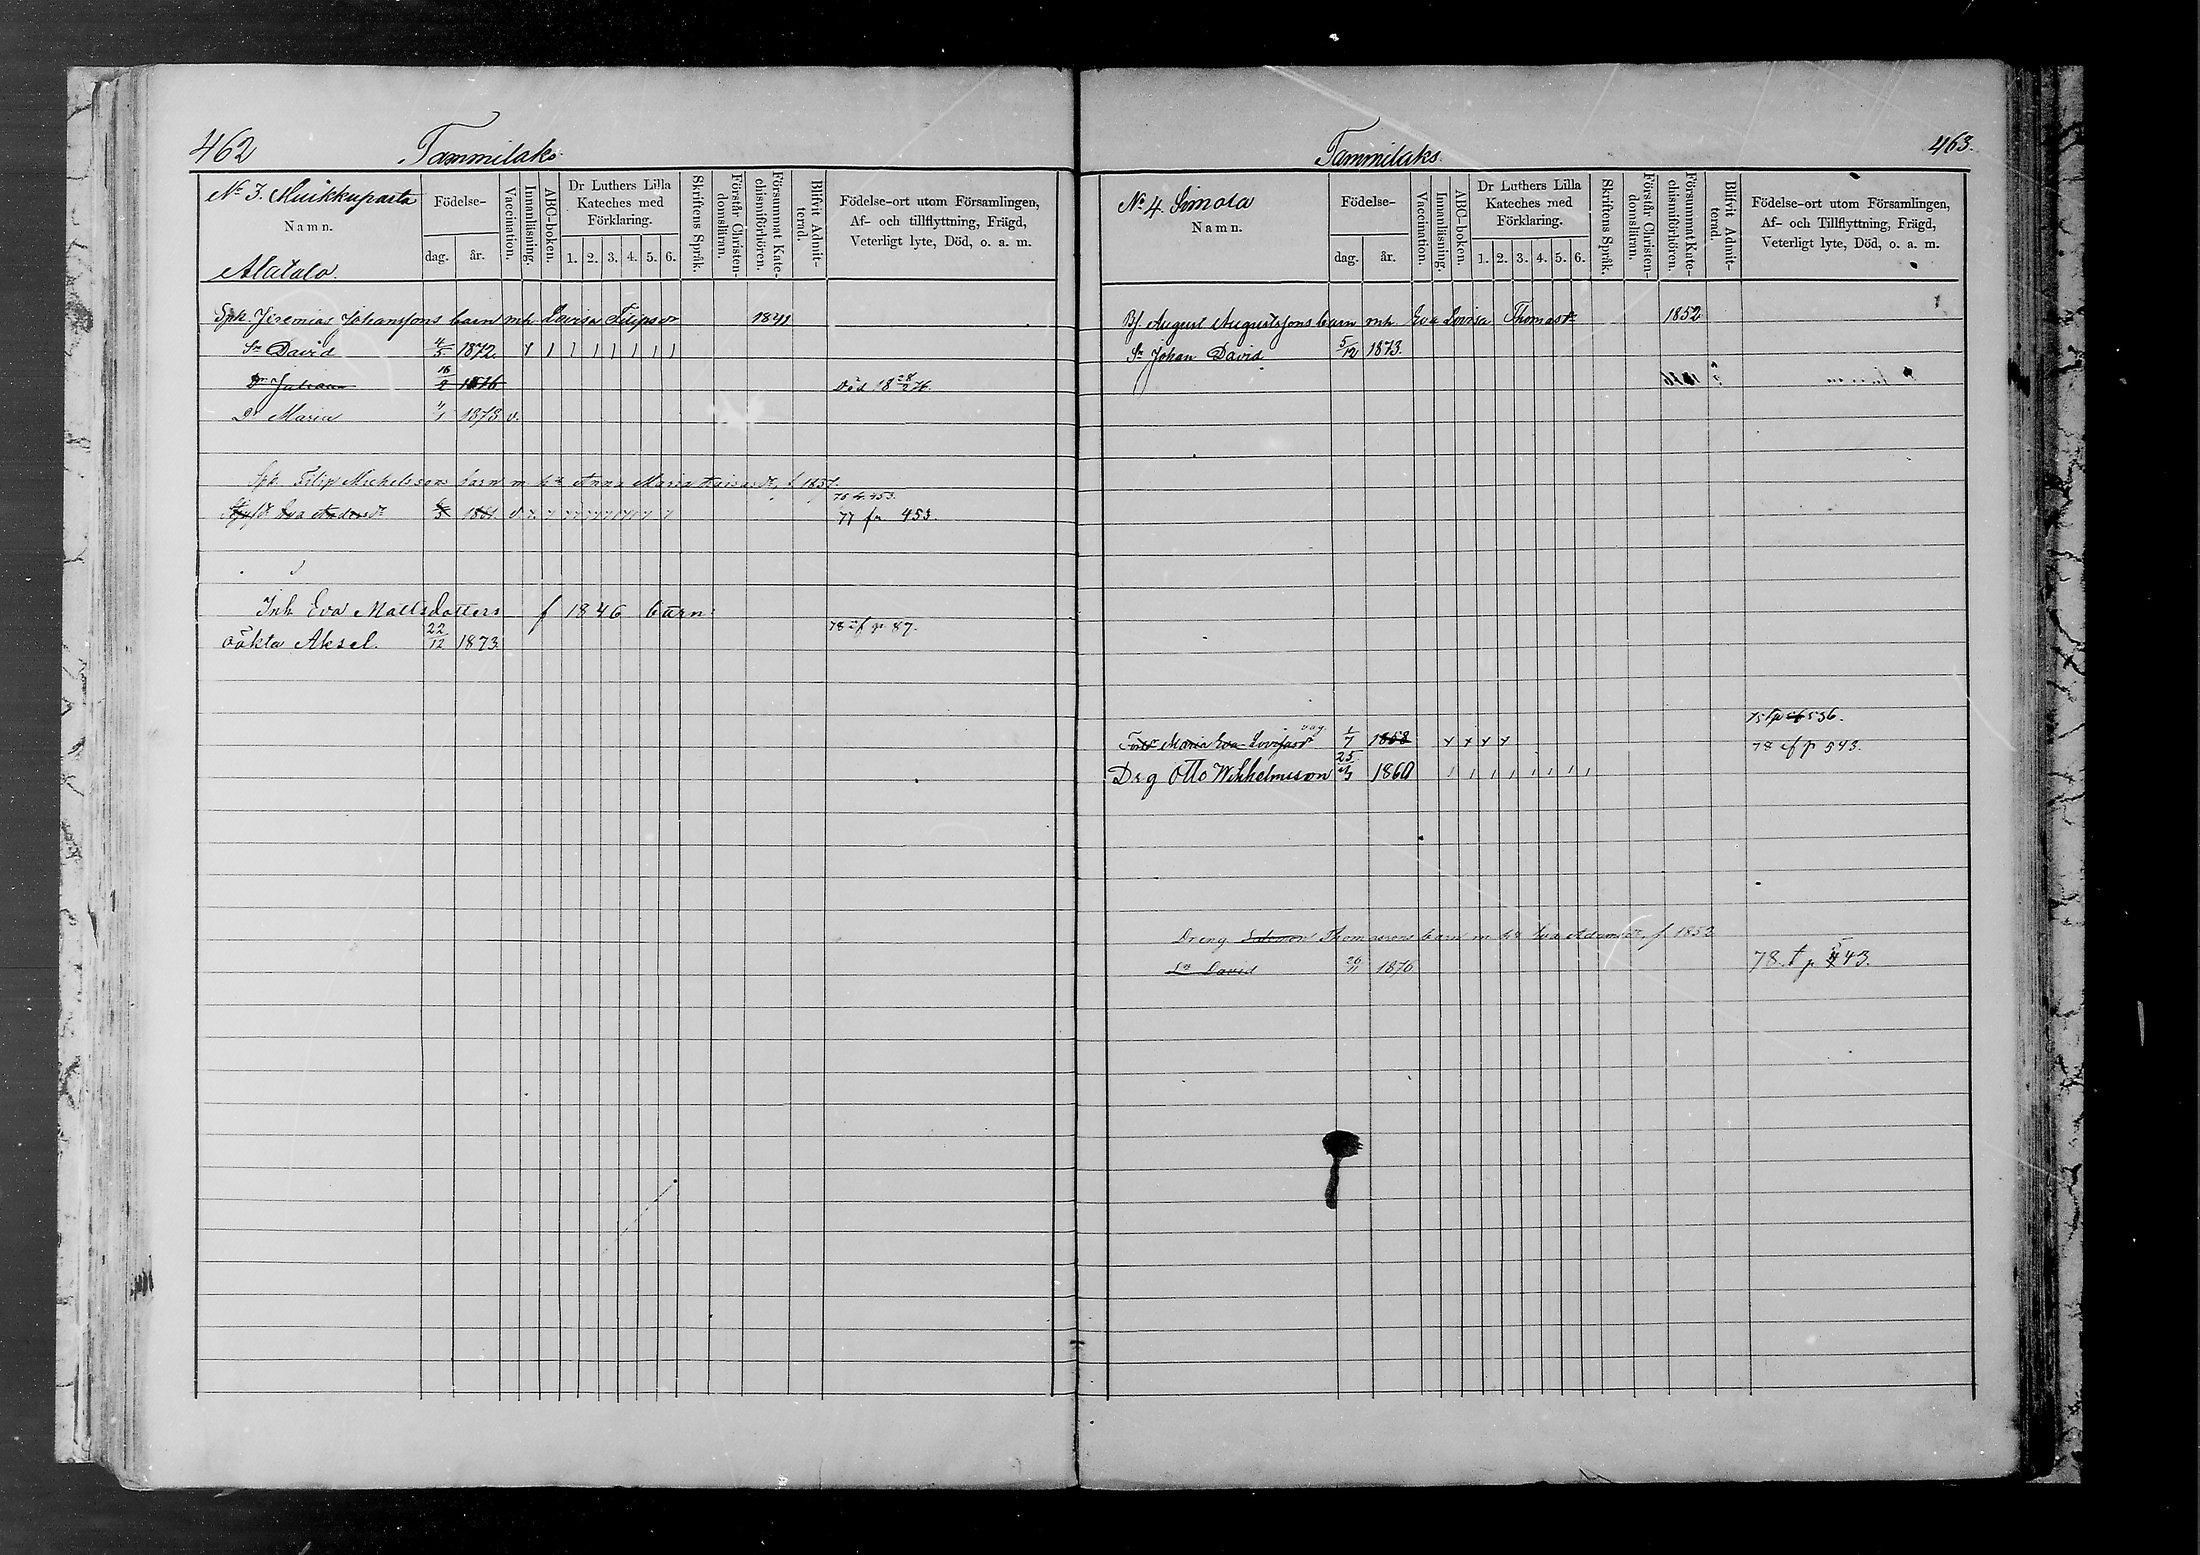 462
Tammilaks.
No 3. Muikkuparta
Namn.
Alatalo.
Födelse-
dag.
år.
Vaccination.
Innanläsning.
ABC-boken.
Dr Luthers Lilla
Kateches med
Förklaring.
1. 2. 3. 4. 5. 6.
Skriftens Språk.
Förstår Christen-
domsläran.
Försummat Kate-
chismiförhören.
Blifvit Admit-
terad.
Födelse-ort utom Församlingen,
Af- och tillflyttning, Frägd,
Veterligt lyte, Död, o. a. m.
Spk. Jeremias Johanssons barn mh Lovisa Filipsdr 1841
Sn David 4/5 1872.
Dr Juliana 16/2 1876 Död 18 28/2 76.
Dr Maria 1/1 1878 v.
Spk. Filip Michelssons barn m h Anna Maria
Eva Andersdr 1861. 77 fr 453.
Inh Eva Mattsdotters f 1846 barn:
78 uf p 87.
oäkta Aksel. 22/12 1873
Tammilaks.
463.
No 4. Simola
Namn.
Födelse-
dag.
år.
Vaccination.
Innanläsning.
ABC-boken.
Dr Luthers Lilla
Kateches med
Förklaring.
1. 2. 3. 4. 5. 6.
Skriftens Språk.
Förstår Christen-
domsläran.
Försummat Kate-
chismiförhören.
Blifvit Admit-
terad.
Födelse-ort utom Församlingen,
Af- och Tillflyttning, Frägd,
Veterligt lyte, Död, o. a. m.
Bf. August Augustssons barn mh. Eva Lovisa Thomasdr 1852
Sn Johan David 5/12 1873.
536.
Maria Eva Lovisasdr 1/7 1858 78 uf p 543.
Drg Otto Wilhelmsson 25/3 1860
Dreng Salomon Thomassons barn m h Eva Adamsdr, f 1852
Sn David 26/11 1876 78 t p 543.